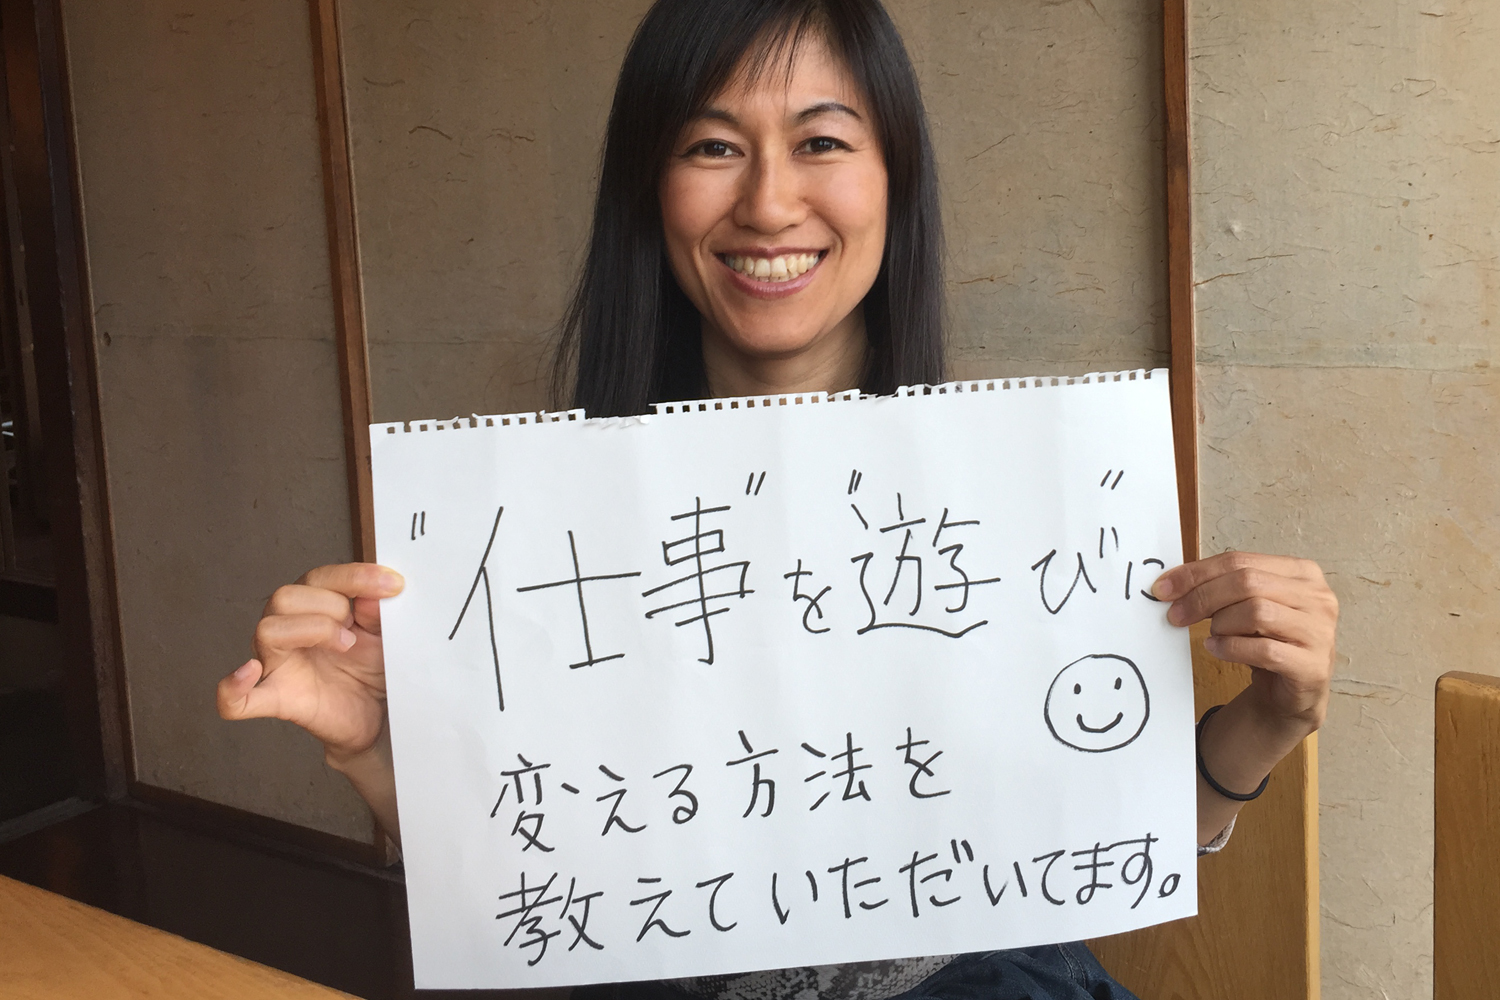 "仕事"を"遊び"に
変える方法を
教えていただいてます。